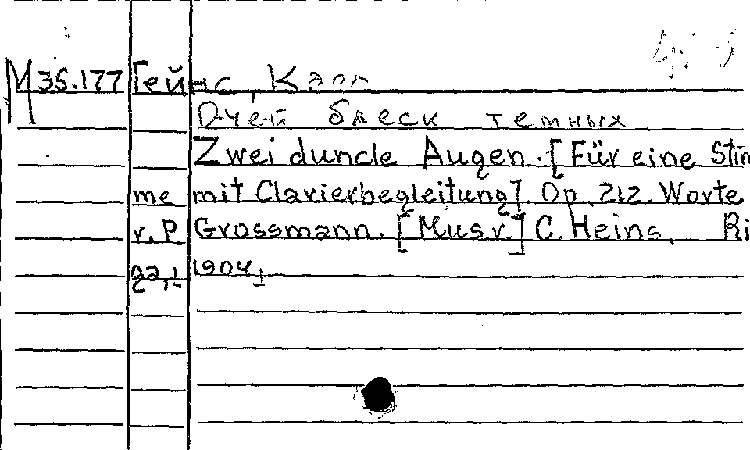 M 35.177 Гейнс, Карл
Очей блеск темных
Zwei duncle Augen. [Für eine Stim
me mit Clavierbegleitung]. Op. 212. Worte
v. P. Grossmann. [Mus. v.] C. Heins. Ri
ga, 1904.